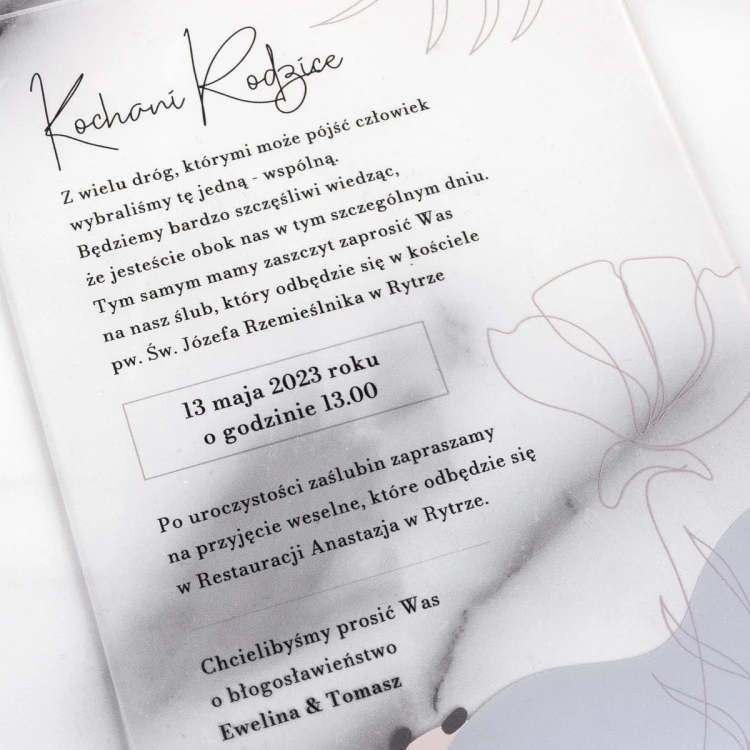 Kochani Rodzice
Z wielu dróg, którymi może pójść człowiek
wybraliśmy tę jedną - wspólną.
Będziemy bardzo szczęśliwi wiedząc,
że jesteście obok nas w tym szczególnym dniu.
Tym samym mamy zaszczyt zaprosić Was
na nasz ślub, który odbędzie się w kościele
pw. Św. Józefa Rzemieślnika w Rytrze
13 maja 2023 roku
o godzinie 13.00
Po uroczystości zaślubin zapraszamy
na przyjęcie weselne, które odbędzie się
w Restauracji Anastazja w Rytrze.
Chcielibyśmy prosić Was
o błogosławieństwo
Ewelina & Tomasz